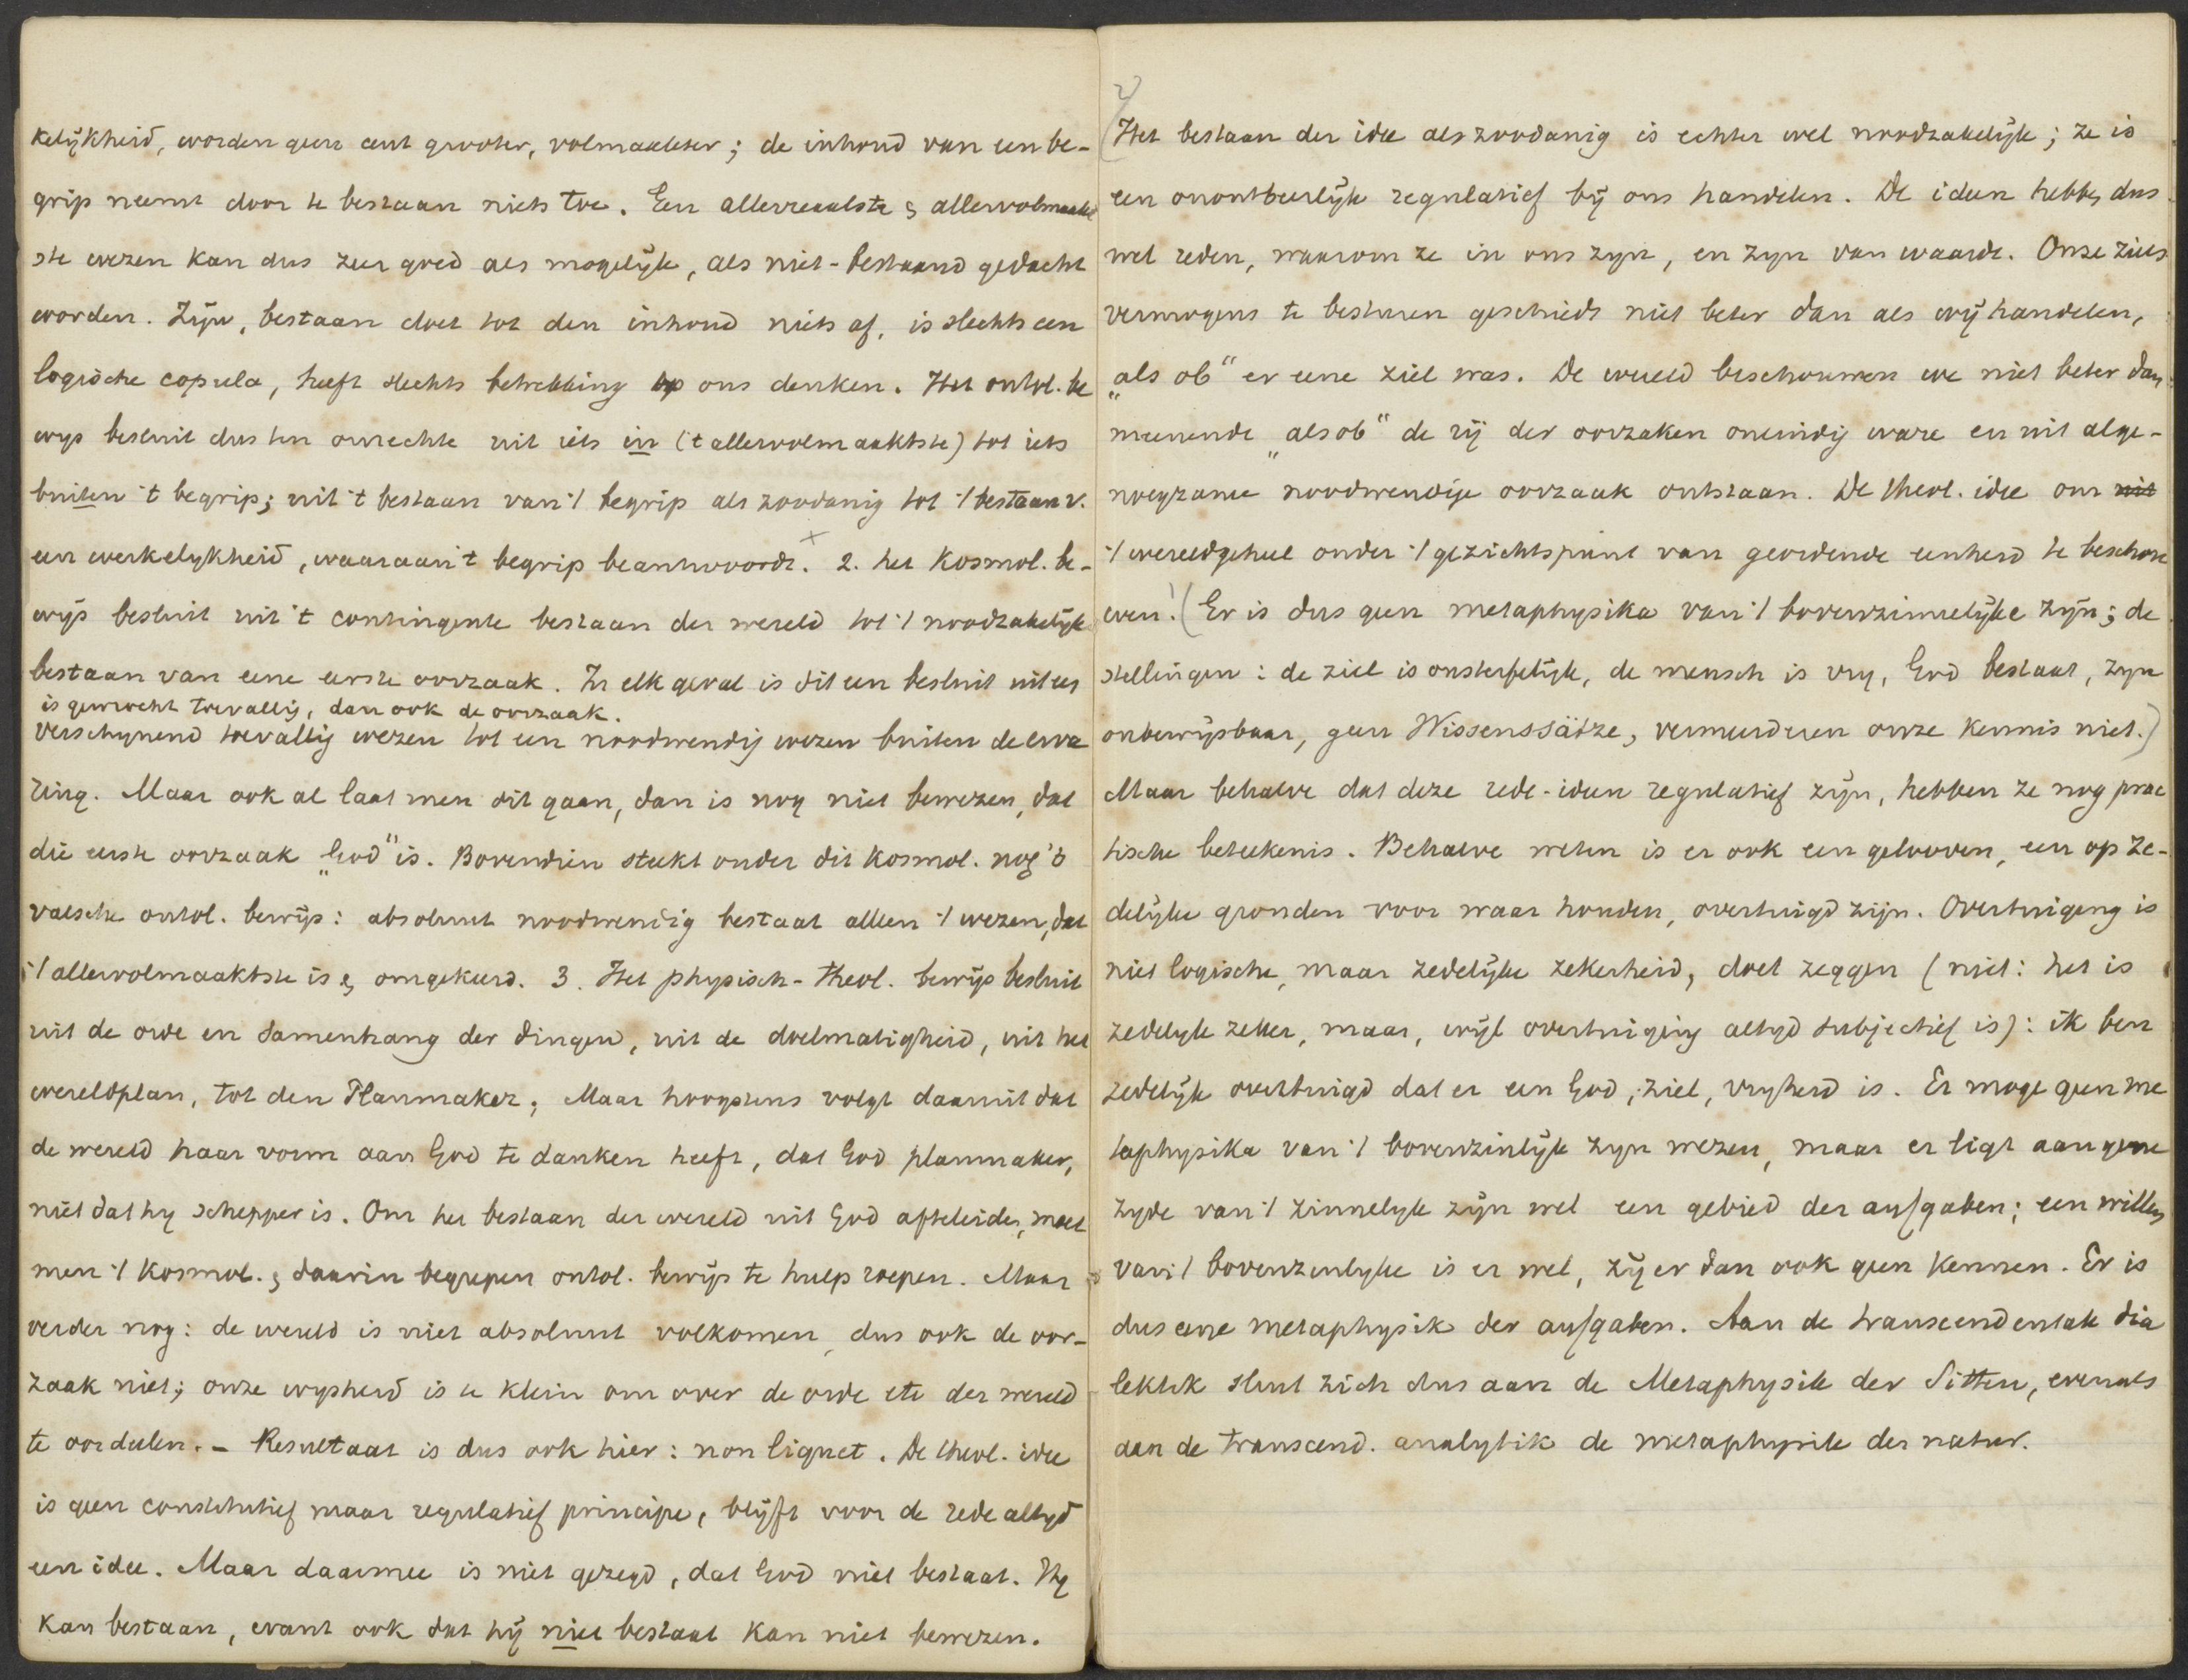 kelijkheid, worden geen cent grooter, volmaakter; de inhoud van een be-
grip neemt door te bestaan niets toe. Een allerreealste & allervolmaakt
ste wezen kan dus zeer goed als mogelijk, als niet-bestaand gedacht
worden. Zijn, bestaan doet tot den inhoud niets af, is slechts een
logische copula, heeft slechts betrekking op ons denken. Het ontol. be
wys besluit dus ten onrechte uit iets in ('t allervolmaaktste) tot iets
buiten 't begrip; uit 't bestaan van 't begrip als zoodanig tot 't bestaan v.
een werkelykheid, waaraan 't begrip beantwoordt. 2. het Kosmol. be-
wijs besluit uit 't contingente bestaan der wereld tot 't noodzakelijk
bestaan van eene eerste oorzaak. In elk geval is dit een besluit uit een
is gewrocht toevallig, dan ook de oorzaak.
verschynend toevallig wezen tot een noodwendig wezen buiten de erva
ring. Maar ook al laat men dit gaan, dan is nog niet bewezen, dat
die eerste oorzaak „God" is. Bovendien steekt onder dit Kosmol. nog 't
valsche ontol. bewijs: absoluut noodwendig bestaat alleen 't wezen, dat
't allervolmaaktste is & omgekeerd. 3. Het physisch-theol. bewijs besluit
uit de orde en samenhang der dingen, uit de doelmatigheid, uit het
wereldplan, tot den Planmaker; Maar hoogstens volgt daaruit dat
de wereld haar vorm aan God te danken heeft, dat God planmaker,
niet dat hy schepper is. Om het bestaan der wereld uit God afteleiden, moet
men 't Kosmol. & daarin begrepen ontol. bewijs te hulp roepen. Maar
verder nog: de wereld is niet absoluut volkomen, dus ook de oor-
zaak niet; onze wysheid is te klein om over de orde etc der wereld
te oordeelen. - Resultaat is dus ook hier: non liquet. De theol. idee
is geen constitutief maar regulatief principe, blijft voor de rede altyd
een idee. Maar daarmee is niet gezegd, dat God niet bestaat. Hy
kan bestaan, want ook dat hij niet bestaat kan niet bewezen.
2)
(Het bestaan der idee als zoodanig is echter wel noodzakelijk; ze is
een onontbeerlijk regulatief bij ons handelen. De ideen hebben dus
wel reden, waarom ze in ons zyn, en zyn van waarde. Onze ziels
vermogens te besturen geschiedt niet beter dan als wij handelen,
„als ob" er eene ziel was. De wereld beschouwen we niet beter dan
meenende „als ob" de rij der oorzaken oneindig ware en uit alge-
noegzame noodwendige oorzaak ontstaan. De theol. idee om uit
't wereldgeheel onder 't gezichtspunt van geordende eenheid te beschou
wen! (Er is dus geen metaphysika van 't bovenzinnelijke zijn; de
stellingen: de ziel is onsterfelijk, de mensch is vry, God bestaat, zyn
onbewijsbaar, geen Wissenssätze, vermeerderen onze kennis niet.)
Maar behalve dat deze rede-ideen regulatief zijn, hebben ze nog prac
tische beteekenis. Behalve weten is er ook een gelooven, een op ze-
delijke gronden voor waar houden, overtuigd zijn. Overtuiging is
niet logische, maar zedelijke zekerheid, doet zeggen (niet: het is
zedelyk zeker, maar, wijl overtuiging altyd subjectief is): ik ben
zedelijk overtuigd dat er een God, ziel, vryheid is. Er moge geen me
taphysika van 't bovenzinlijk zyn wezen, maar er ligt aan gene
zyde van 't zinnelyk zijn wel een gebied der aufgaben; een willen
van 't bovenzinlyke is er wel, zij er dan ook geen kennen. Er is
dus eene metaphysik der aufgaben. Aan de transcendentale dia
lektik sluit zich dus aan de Metaphysik der Sitten, evenals
aan de transcend. analytik de metaphysik der natur.